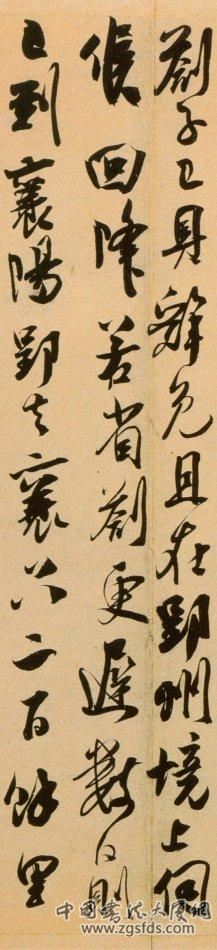 劄子已具辭免且在郢州境上伺
候回降若省劄更遲數日則
已到襄陽郢去襄只二百餘里
中国书法大
www.zgsfds.com